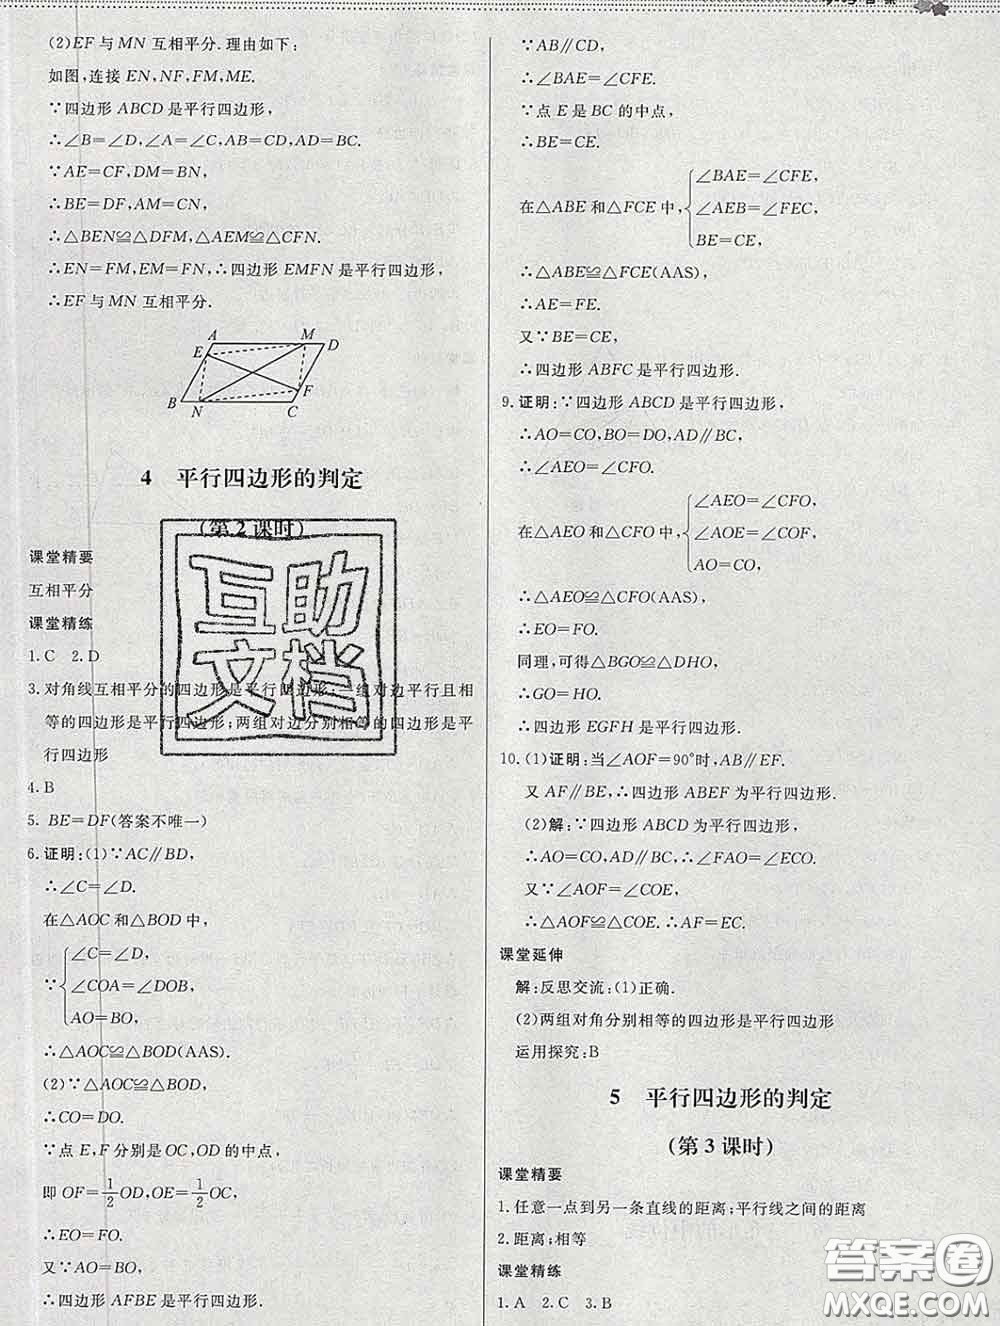 (2)EF 与 MN 互相平分.理由如下:
如图,连接 EN,NF,FM,ME.
∵四边形 ABCD 是平行四边形,
∴∠B=∠D,∠A=∠C,AB=CD,AD=BC.
∵AE=CF,DM=BN,
∴BE=DF,AM=CN,
∴△BEN≌△DFM,△AEM≌△CFN.
∴EN=FM,EM=FN,∴四边形 EMFN 是平行四边形,
∴EF 与 MN 互相平分.
A M D
E
F
B N C
4 平行四边形的判定
(第 2 课时)
课堂精要
互相平分
课堂精练
1.C 2.D
3.对角线互相平分的四边形是平行四边形;一组对边平行且相
等的四边形是平行四边形;两组对边分别相等的四边形是平
行四边形
4.B
5. BE=DF(答案不唯一)
6.证明:(1)∵AC∥BD,
∴∠C=∠D.
在△AOC 和△BOD 中,
∠C=∠D,
∵ ∠COA=∠DOB,
AO=BO,
∴△AOC≌△BOD(AAS).
(2)∵△AOC≌△BOD,
∴CO=DO.
∵点 E,F 分别是 OC,OD 的中点,
即 OF=1/2OD,OE=1/2OC,
∴EO=FO.
又∵AO=BO,
∴四边形 AFBE 是平行四边形.
互助
文档
∵AB∥CD,
∴∠BAE=∠CFE.
∵点 E 是 BC 的中点,
∴BE=CE.
∠BAE=∠CFE,
在△ABE 和△FCE 中, ∠AEB=∠FEC,
BE=CE,
∴△ABE≌△FCE(AAS)
∴AE=FE.
又∵BE=CE,
∴四边形 ABFC 是平行四边形.
9.证明:∵四边形 ABCD 是平行四边形,
∴AO=CO,BO=DO,AD∥BC,
∴∠AEO=∠CFO.
∠AEO=∠CFO,
在△AEO 和△CFO 中, ∠AOE=∠COF,
AO=CO,
∴△AEO≌△CFO(AAS),
∴EO=FO.
同理,可得△BGO≌△DHO,
∴GO=HO.
∴四边形 EGFH 是平行四边形.
10.(1)证明:当∠AOF=90°时,AB∥EF.
又 AF∥BE,∴四边形 ABEF 为平行四边形.
(2)解:∵四边形 ABCD 为平行四边形,
∴AO=CO,AD∥BC,∴∠FAO=∠ECO.
又∵∠AOF=∠COE,
∴△AOF≌△COE.∴AF=EC.
课堂延伸
解:反思交流:(1)正确.
(2)两组对角分别相等的四边形是平行四边形
运用探究:B
5 平行四边形的判定
(第 3 课时)
课堂精要
1.任意一点到另一条直线的距离;平行线之间的距离
2.距离;相等
课堂精练
1.A 2.C 3.B
答案卷
MXQE.COM